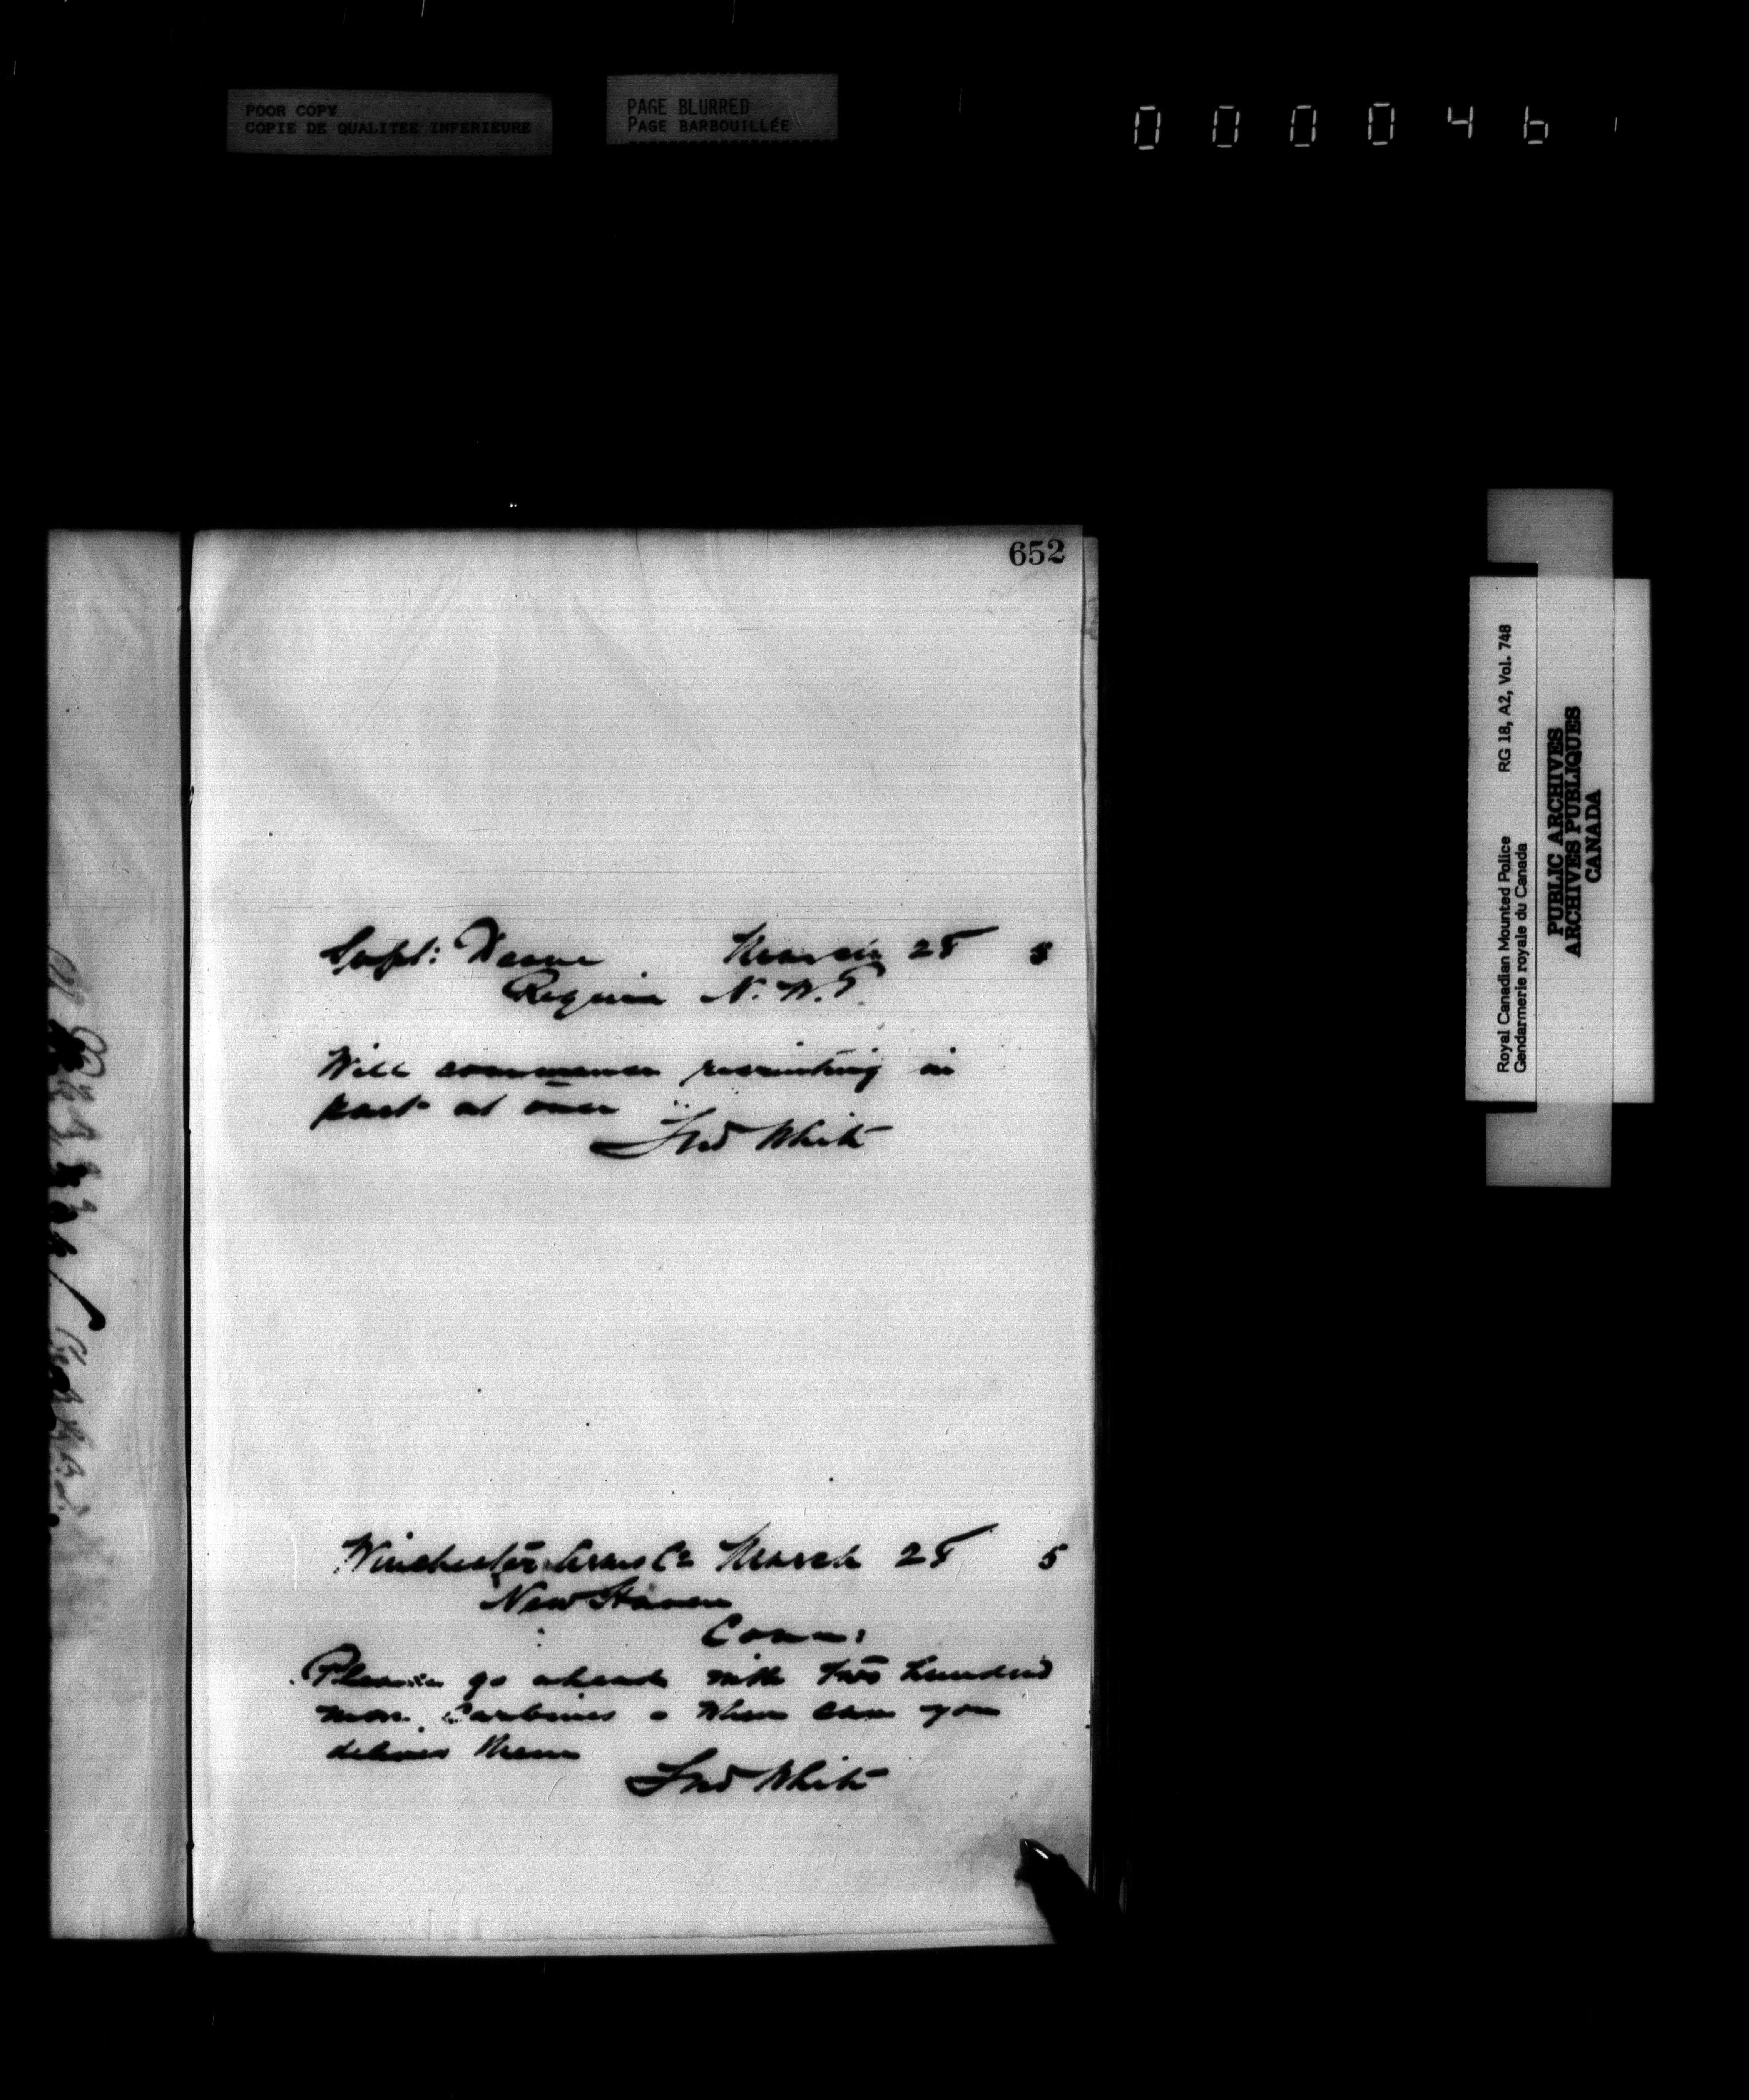 POOR COPY
COPIE DE QUALITEE INFERIEURE
PAGE BLURRED
PAGE BARBOUILLÉE
000046
652
Supt: Deane March 28 5
Regina N.W.T.
Will commence recruiting in
east at once
Fred White
Winchester Arms Co March 28 5
New Haven
Conn:
Please go ahead with two hundred
more Carbines - When can you
deliver them
Fred White
Royal Canadian Mounted Police RG 18, A2, Vol. 748
Gendarmerie royale du Canada
PUBLIC ARCHIVES
ARCHIVES PUBLIQUES
CANADA